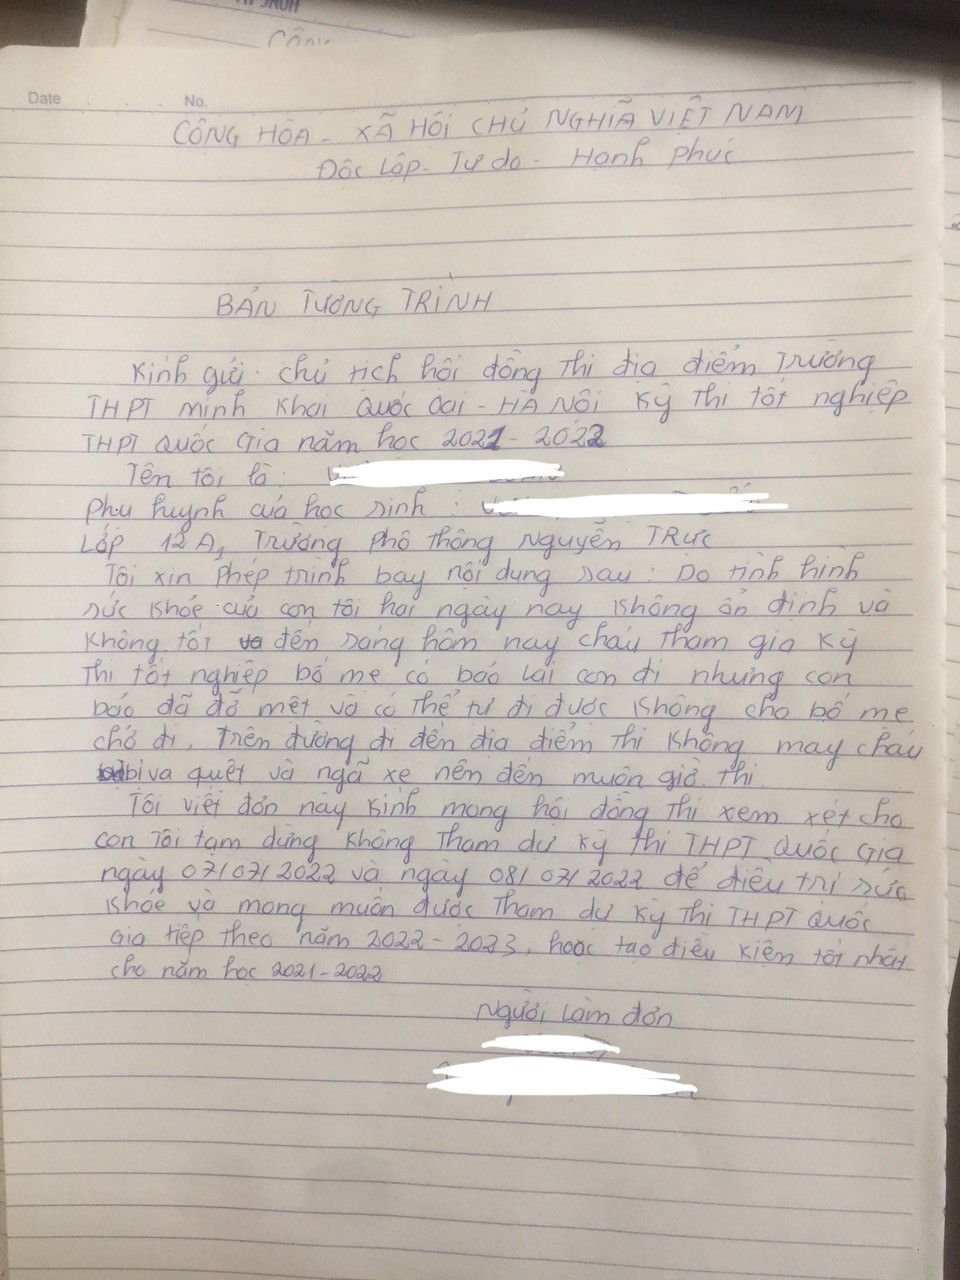 Date No.
CỘNG HÒA - XÃ HỘI CHỦ NGHĨA VIỆT NAM
Độc Lập - Tự do - Hạnh phúc
BẢN TƯỜNG TRÌNH
Kính gửi. chủ tịch hội đồng thi địa điểm Trường
THPT minh Khai Quốc Oai - HÀ NỘI Kỳ thi tốt nghiệp
THPT Quốc Gia năm học 2021 - 2022
Tên tôi là:
phụ huynh của học sinh :
Lớp 12A1 Trường phổ thông Nguyễn TRực
Tôi xin phép trình bày nội dung sau: Do tình hình
sức khỏe của con tôi hai ngày nay không ổn định và
không tốt đến sáng hôm nay cháu tham gia kỳ
thi tốt nghiệp bố mẹ có bảo lai con đi nhưng con
bảo đã đỡ mệt và có thể tự đi được không cho bố mẹ
chở đi, trên đường đi đến địa điểm thi không may cháu
bị va quệt và ngã xe nên đến muộn giờ thi.
Tôi viết đơn này kính mong hội đồng thi xem xét cho
con tôi tạm dừng không tham dự kỳ thi THPT Quốc Gia
ngày 07/07/2022 và ngày 08/07/2022 để điều trị sức
khỏe và mong muốn được tham dự kỳ thi THPT Quốc
Gia tiếp theo năm 2022 - 2023, hoặc tạo điều kiện tốt nhất
cho năm học 2021 - 2022
Người làm đơn